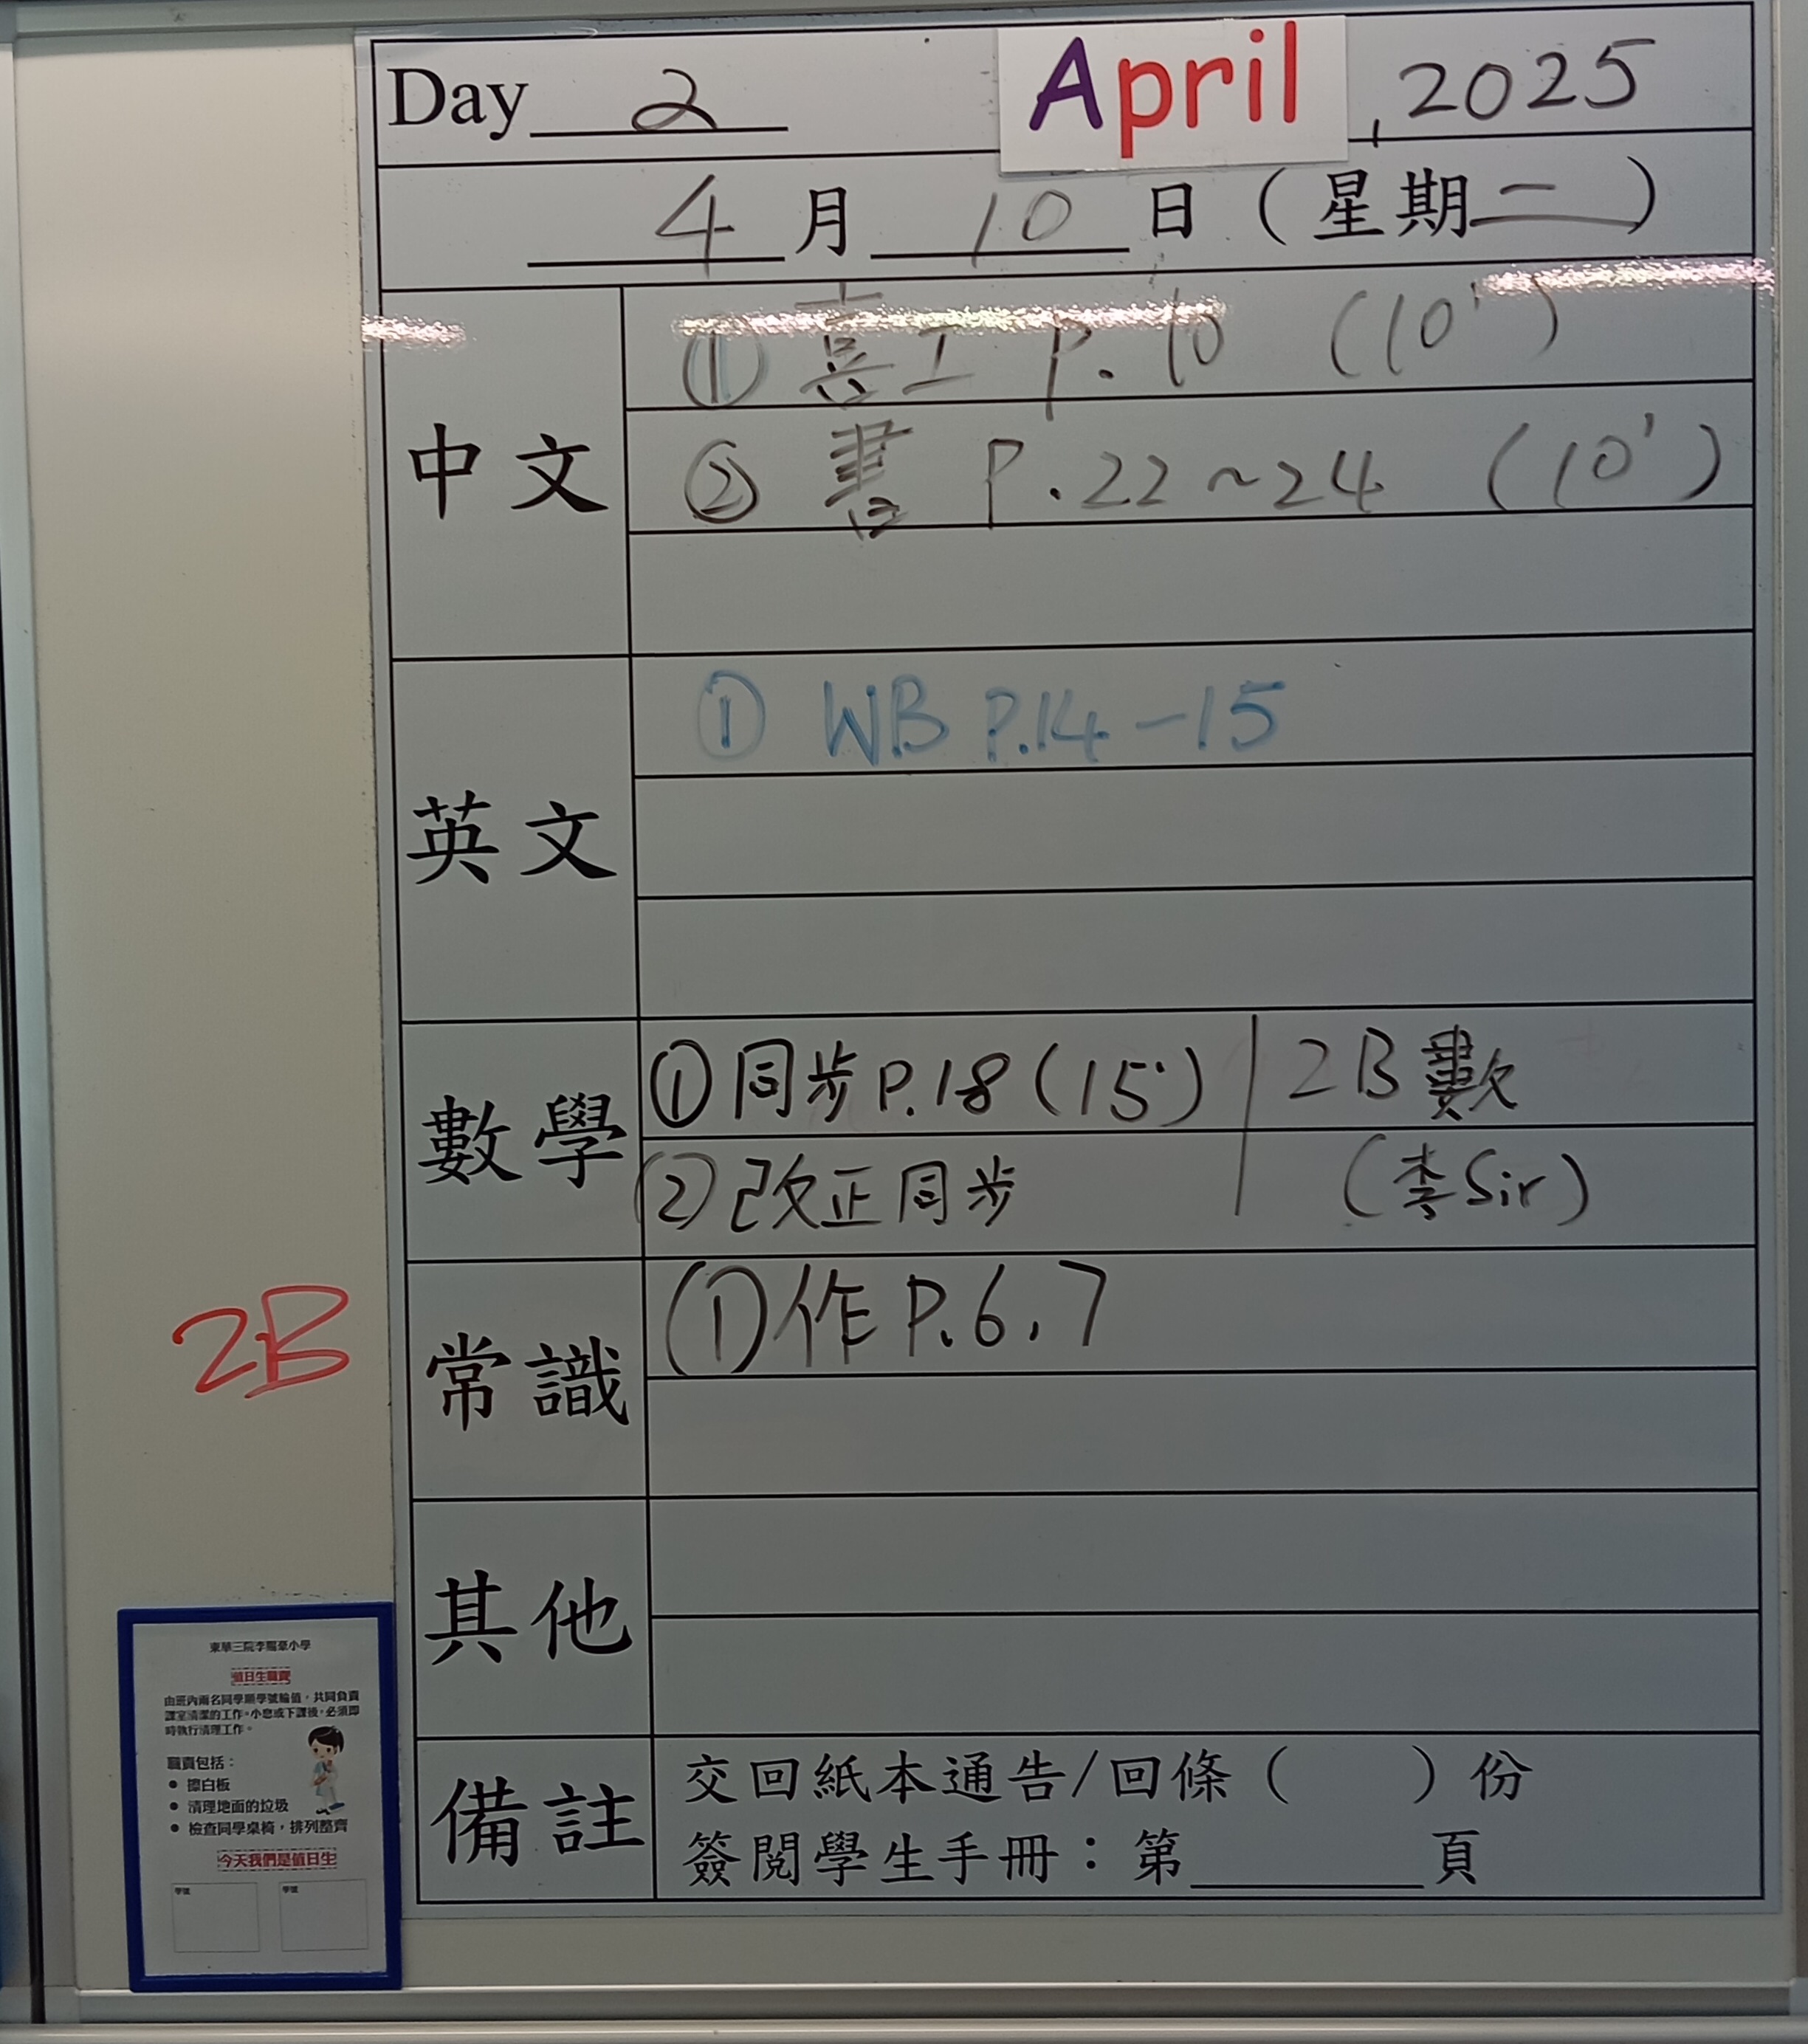 Day 2 April , 2025
4 月 10 日 ( 星期二 )
中文
① 喜工 P. 10 (10')
② 書 P. 22~24 (10')
英文
① WB P.14-15
數學
① 同步 P.18 (15') 2B 數
② 改正同步 (李Sir)
常識
① 作 P.6,7
其他
備註
交回紙本通告/回條 ( ) 份
簽閱學生手冊：第______頁
2B
東華三院李賜豪小學
值日生職責
由班內兩名同學順學號輪值，共同負責
課室清潔的工作。小息或下課後，必須即
時執行清理工作。
職責包括：
● 擦白板
● 清理地面的垃圾
● 檢查同學桌椅，排列整齊
今天我們是值日生
學號 學號